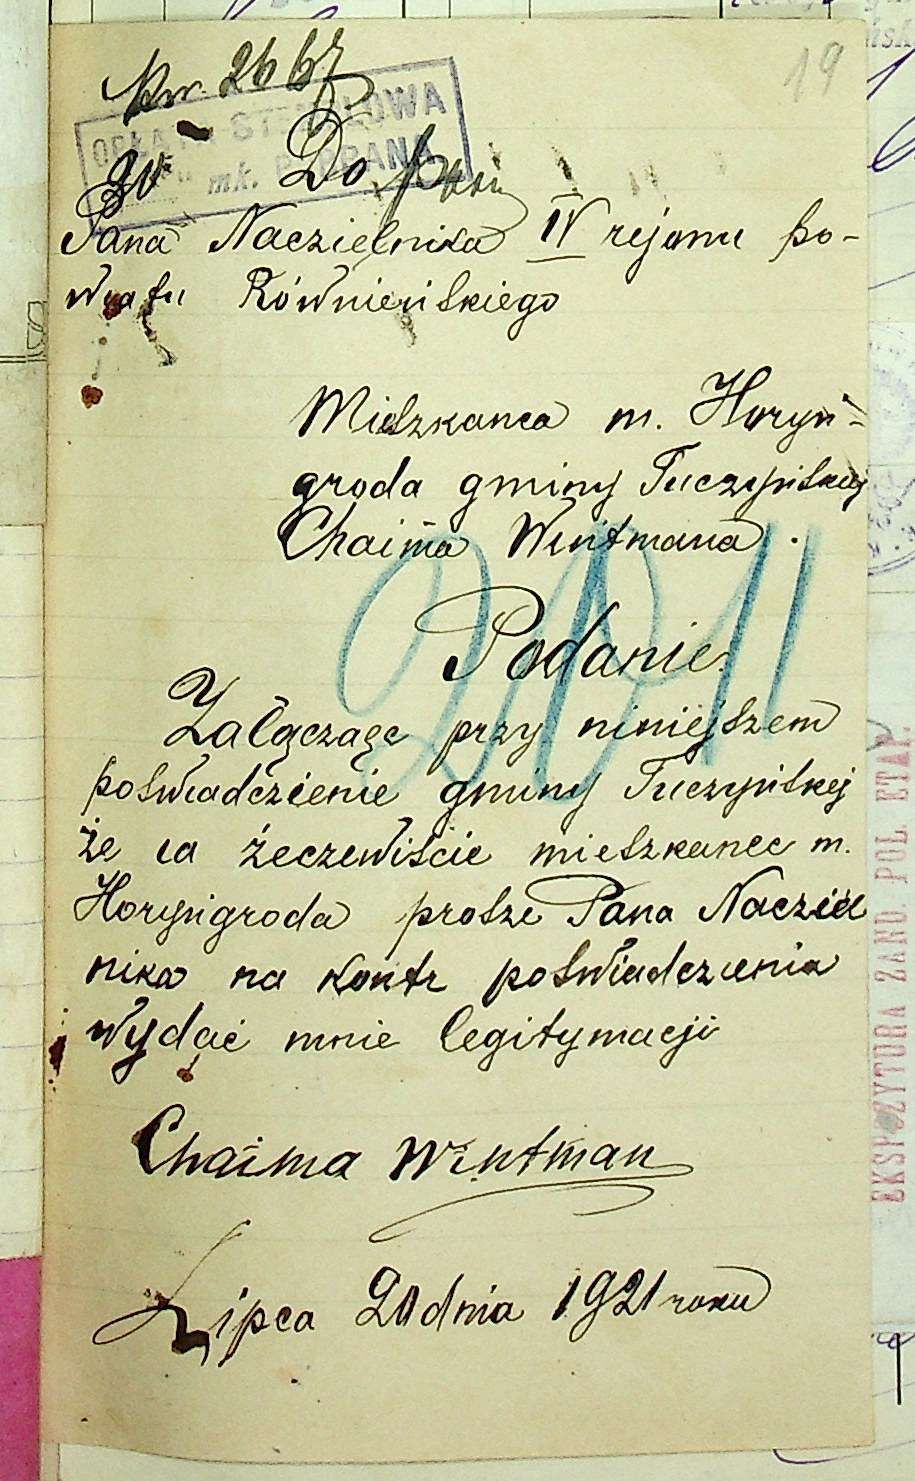 19
Kw. 2667
OPŁATA STEMPLOWA
mk. POBRANA
Do
Pana Naczielnika IV rejonu po-
wiatu Równieńskiego
Mieszkanca m. Horyn-
groda gminy Tuczyńskiej
Chaima Wintmana.
2011
Podanie.
Załączaąc przy niniejszem
poswiadczienie gminy Tuczyńskej
że ia żeczewiście mieszkanec m.
Horyngroda prosze Pana Nacziel
nika na kontr poswiadczienia
wydać mnie legitymacji
Chaima Wintman
Lipca 20 dnia 1921 roku
EKSPOZYTURA ZARD. POL. ETAP.